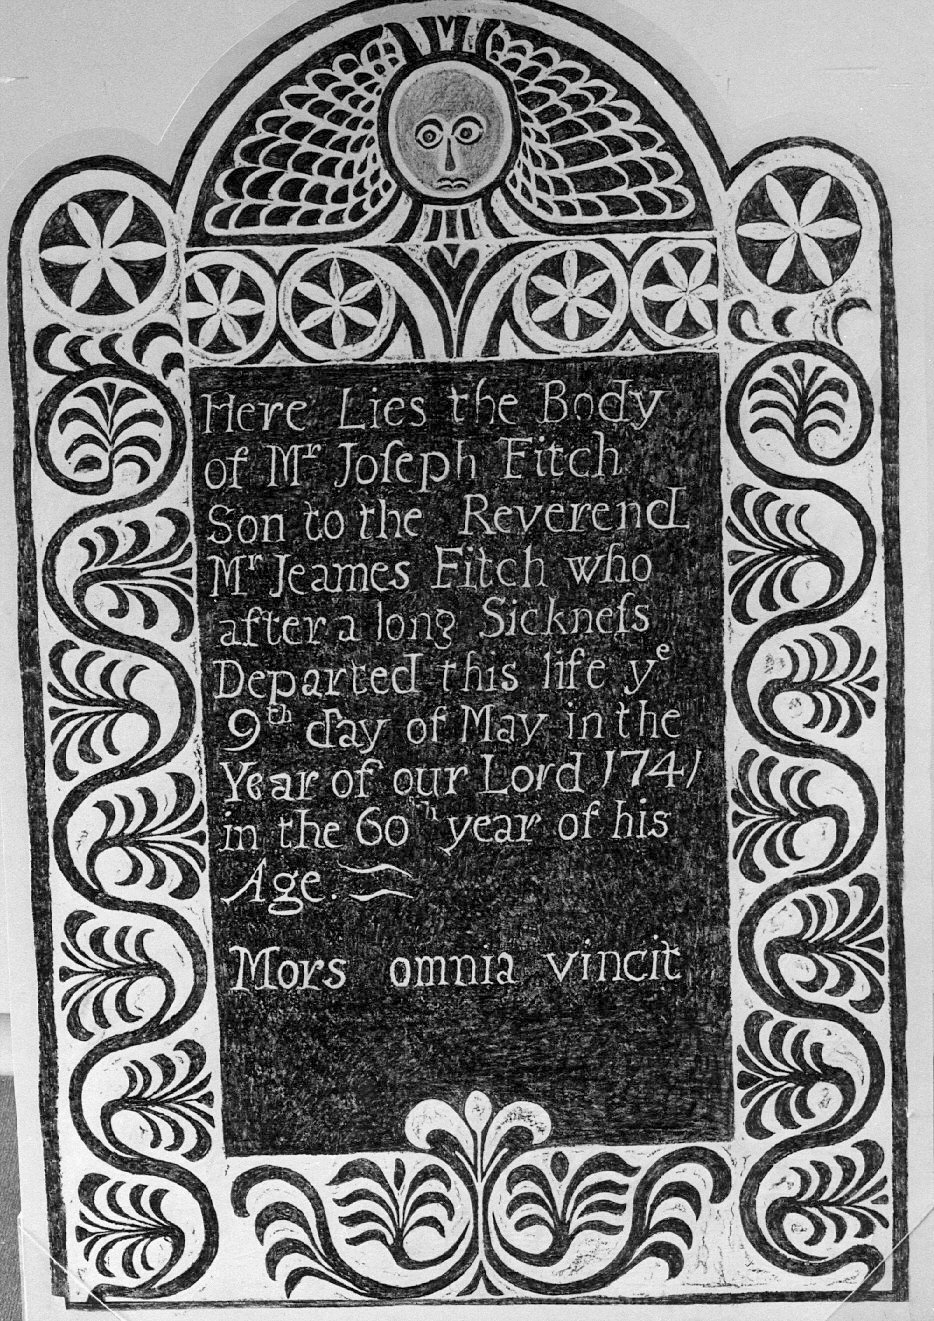 Here Lies the Body
of Mr Joſeph Fitch
Son to the Reverend
Mr Jeames Fitch who
after a long Sickneſs
Departed this life ye
9th day of May in the
Year of our Lord 1741
in the 60th year of his
Age.
Mors omnia vincit